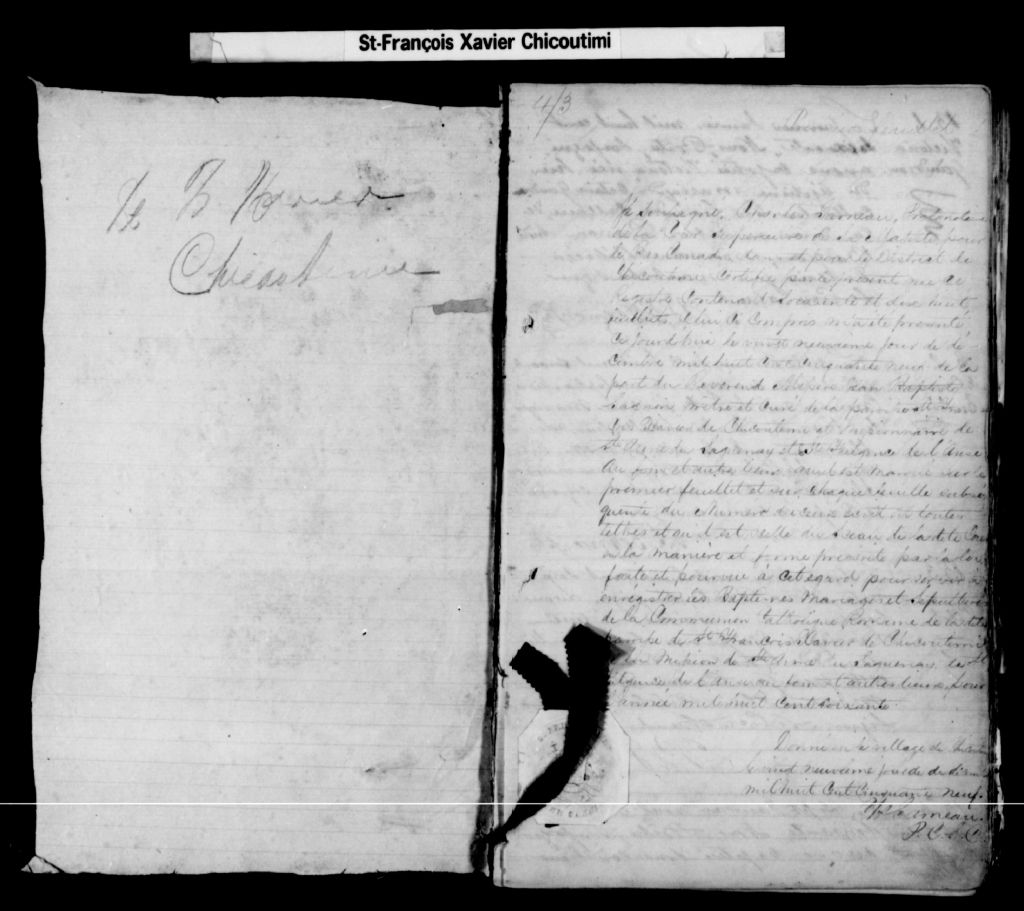 St-François Xavier Chicoutimi
St F Xavier
Chicoutimi
4/3
Premier Feuillet
Je soussigné, Charles Cimeau, Protonotaire
de la Cour Superieure de Sa Majesté pour
le Bas Canada, dans et pour le District de
Chicoutimi certifie par le présent que ce
Registre Contenant Soixante et dix huit
feuillets celui ci compris m'a été presenté
ce jourd'hui le vingt neuvieme jour de dé
cembre mil huit cent cinquante neuf de la
part du Reverend Messire Jean Baptiste
Gagnon Prêtre et Curé de la paroisse St Fran
çois Xavier de Chicoutimi et Missionnaire de
Ste Anne du Saguenay et St Fulgence de l'Anse
au foin et autres lieux, qu'il est numéroté sur le
premier feuillet et sur chaque feuille subsé
quente du numero d'iceux écrit en toutes
lettres et qu'il est scellé du sceau de la dite Cour
en la manière et forme prescrite par la loi
faite et pourvue à cet égard pour servir à
enrégistrer les Baptemes Mariages et Sépultures
de la Communion Catholique Romaine de la dite
paroisse de St François Xavier de Chicoutimi
et la Mission de Ste Anne du Saguenay, de St
Fulgence de l'Anse au foin et autres lieux, pour
l'année mil huit cent soixante
Donné au village de Chicoutimi
le vingt neuvieme jour de décembre
mil huit cent cinquante neuf.
P. C. S. C.